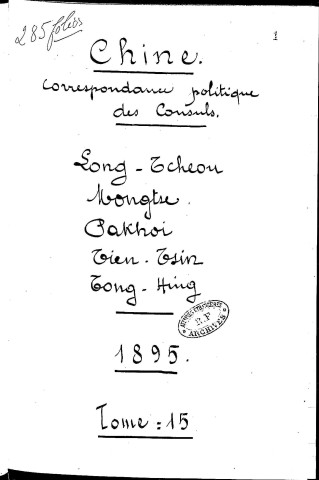 285 folios
1
Chine.
Correspondance politique
des Consuls.
Long-Tcheou
Mongtse.
Pakhoi
Tien-Tsin
Tong-Hing
AFFAIRES ETRANGERES
R.F
ARCHIVES
1895.
Tome: 15